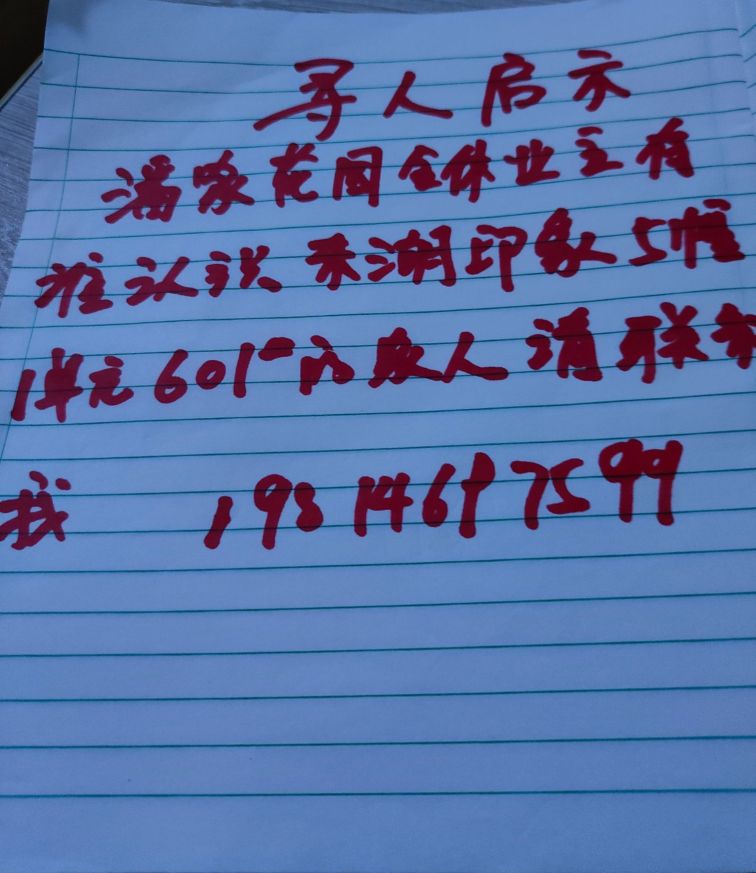 寻人启示
潘家花园全体业主有
谁认识 湖印象5幢
1单元601的家人请联系
我 193 1469 7599